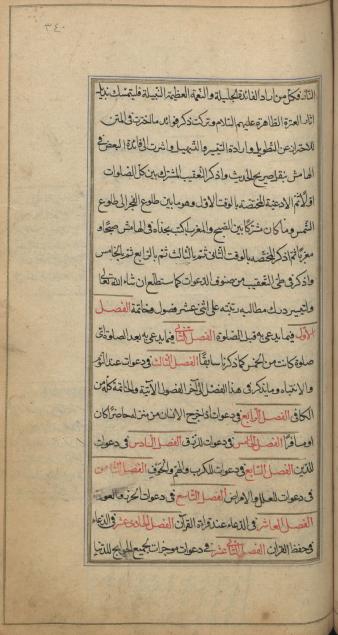 ٣٤٠
النار فكل من اراد الفائدة الجليلة والنعمة العظيمة النبيلة فليتمسك بذيل
اثار العترة الطاهرة عليهم السلام وتركت ذكر فوائد ما اخترت في المتن
للاحتراز عن التطويل وارادة التيسير والتسهيل واشرت الى فائدة البعض في
الهامش بنقل صريح الحديث واذكر التعقيب المشترك بين كل الصلوات
اولا ثم الادعية المختصة بالوقت الاول وهو ما بين طلوع الفجر الى طلوع
الشمس وما كان مشتركا بين الصبح والمغرب اكتب بحذاه في الهامش صبحا و
مغربا ثم اذكر المختصة بالوقت الثاني ثم بالثالث ثم بالرابع ثم بالخامس
واذكر في طي التعقيب من صنوف الدعوات كما ستطلع ان شاء الله تعالى
ولتيسير درك مطالبه رتبته على اثنى عشر فصول وخاتمة الفصل
الاول فيما يدعى به قبل الصلوة الفصل الثاني فيما يدعى به بعد الصلوة اي
صلوة كانت من الخمس كما ذكرنا سابقا الفصل الثالث في دعوات عند النوم
والانتباه وما يذكر في هذا الفصل الى آخر الفصول الآتية والخاتمة كله من
الكافي الفصل الرابع في دعوات اذا خرج الانسان من منزله حاضرا كان
او مسافرا الفصل الخامس في دعوات للرزق الفصل السادس في دعوات
للدين الفصل السابع في دعوات للكرب والهم والخوف الفصل الثامن
في دعوات للعلل والامراض الفصل التاسع في دعوات الحرز والعوذة
الفصل العاشر في الدعاء عند قراءة القرآن الفصل الحادي عشر في الدعاء
في حفظ القرآن الفصل الثاني عشر في دعوات موجزات لجميع الحوائج للدنيا